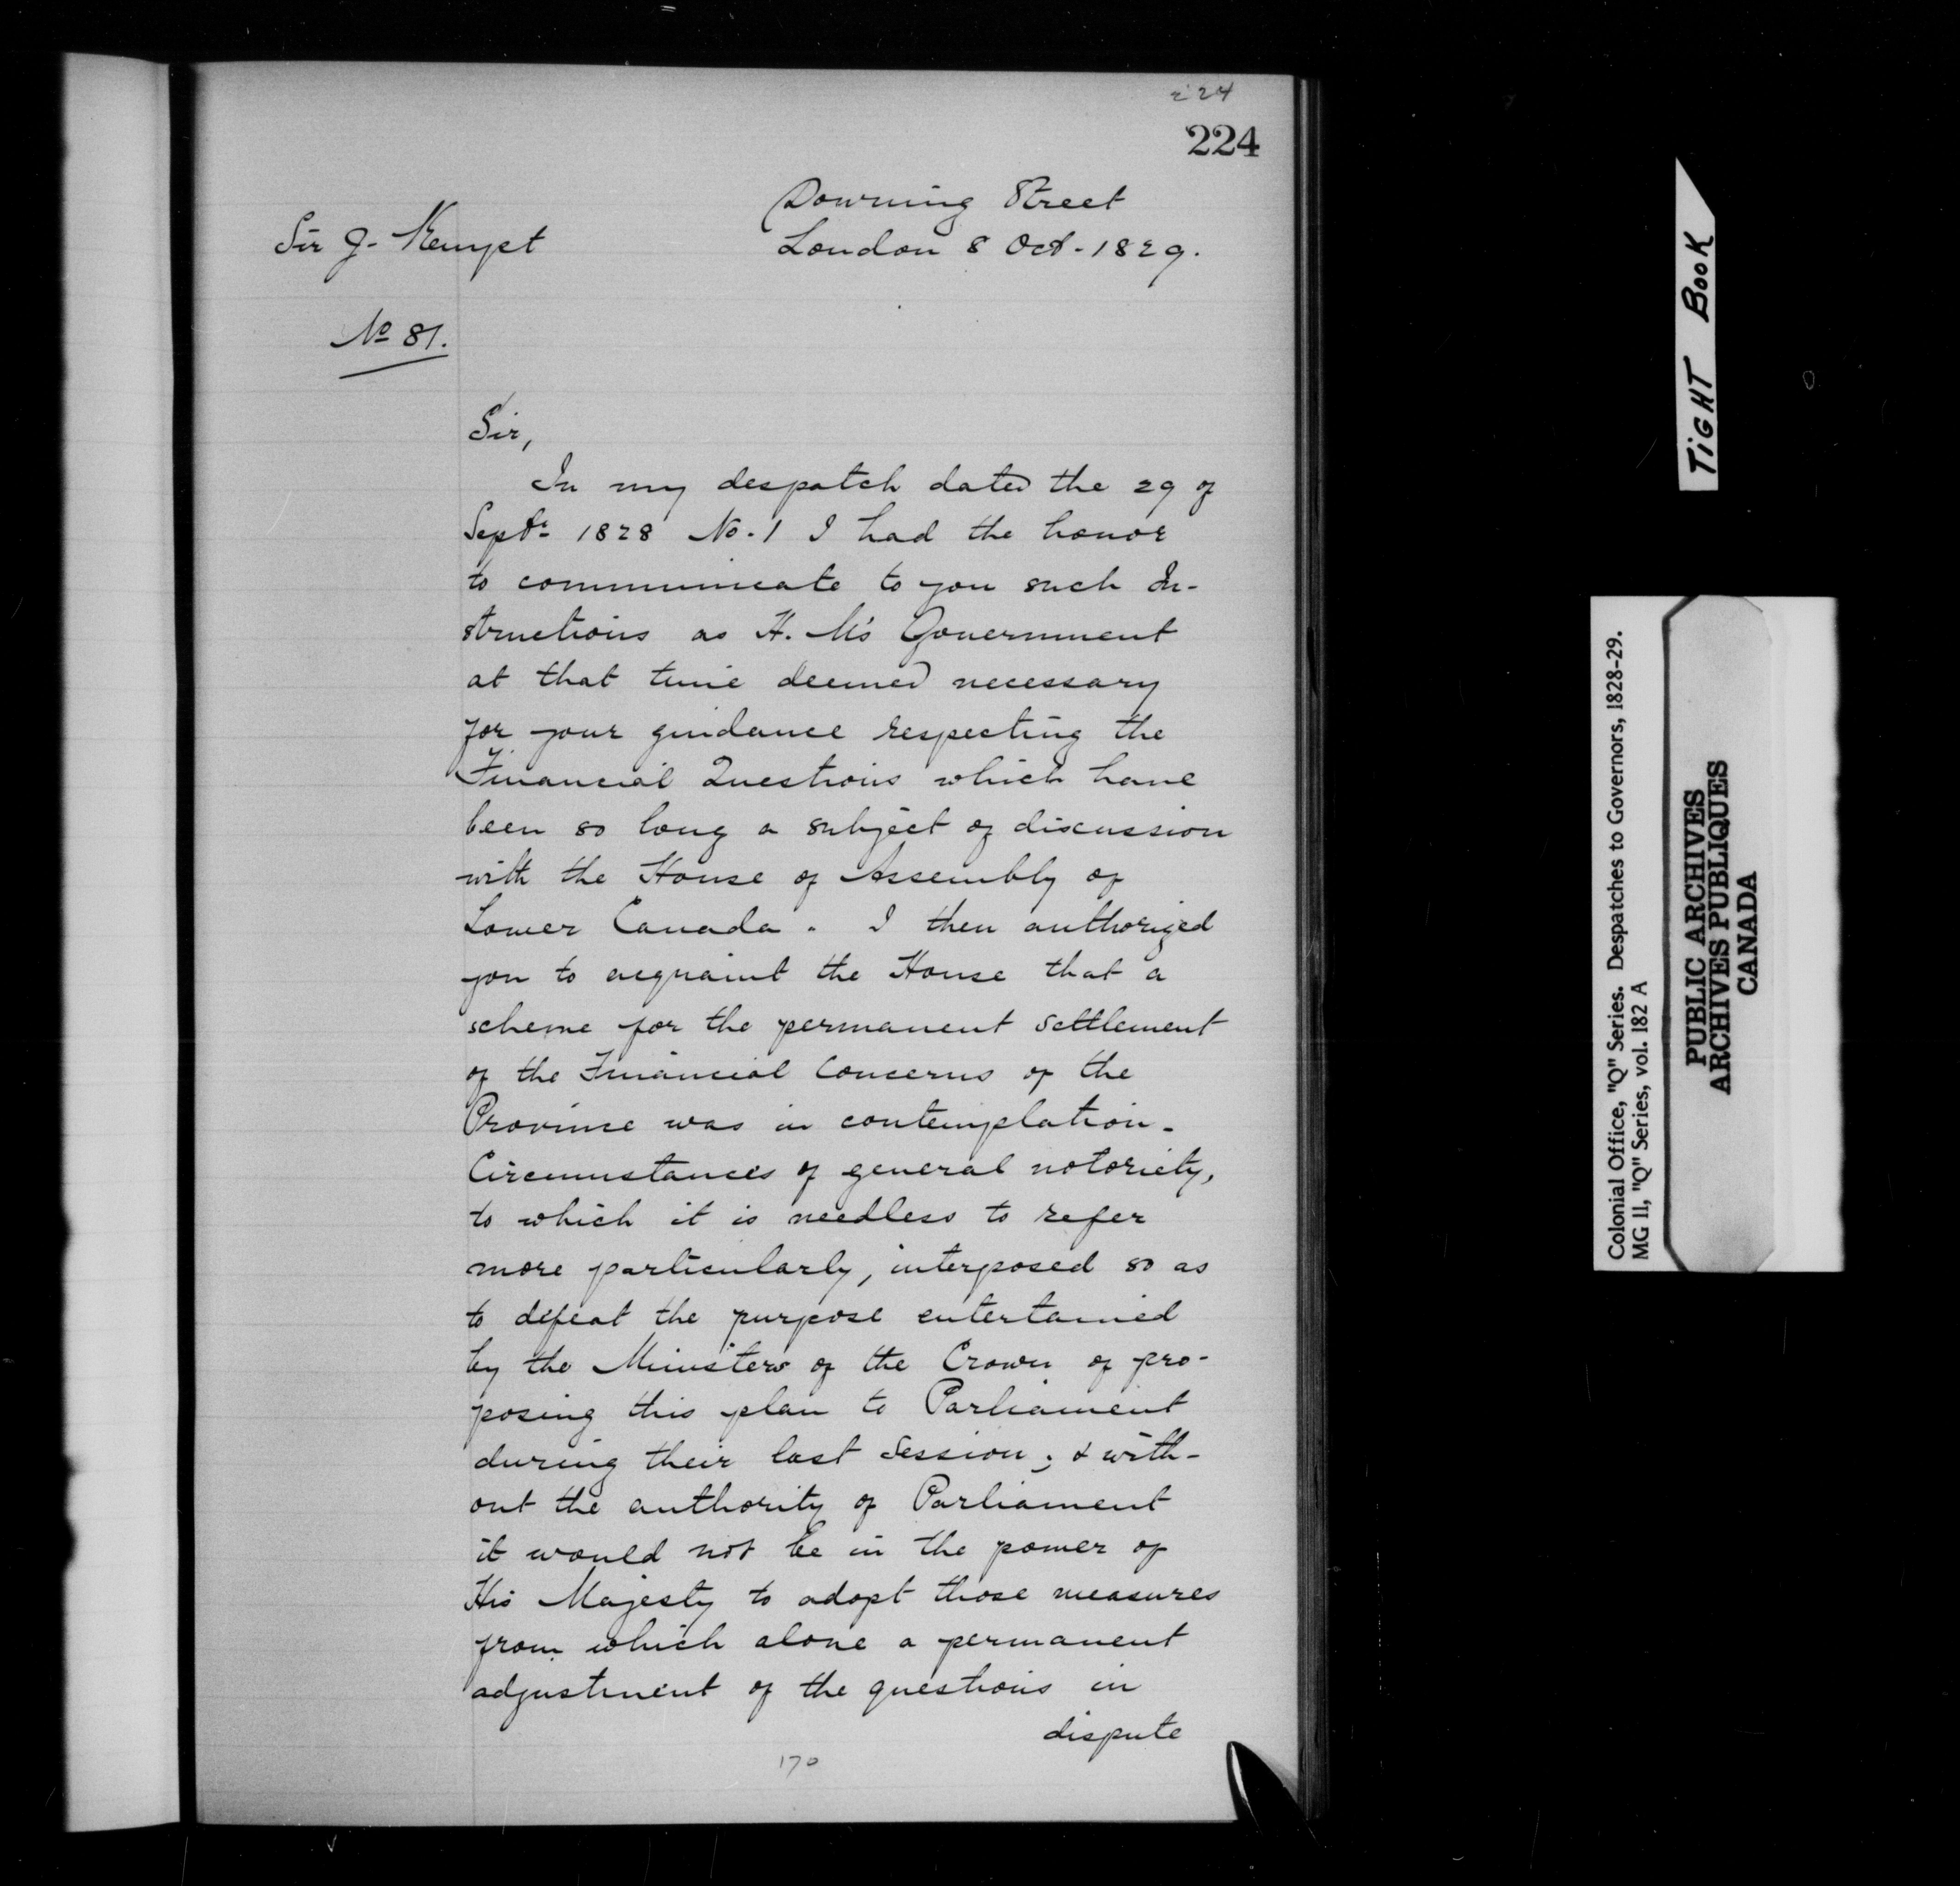 224
224
Downing Street
Sir J. Kempt
London 8 Oct. 1829.
No 81.
Sir,
In my despatch dated the 29 of
Septr 1828 No. 1 I had the honor
to communicate to you such In-
structions as H. M's Government
at that time deemed necessary
for your guidance respecting the
Financial Questions which have
been so long a subject of discussion
with the House of Assembly of
Lower Canada. I then authorized
you to acquaint the House that a
scheme for the permanent settlement
of the Financial Concerns of the
Province was in contemplation.
Circumstances of general notoriety,
to which it is needless to refer
more particularly, interposed so as
to defeat the purpose entertained
by the Ministers of the Crown of pro-
posing this plan to Parliament
during their last Session; & with-
out the authority of Parliament
it would not be in the power of
His Majesty to adopt those measures
from which alone a permanent
adjustment of the questions in
dispute
170
TIGHT BOOK
Colonial Office, "Q" Series. Despatches to Governors, 1828-29.
MG 11, "Q" Series, vol. 182 A
PUBLIC ARCHIVES
ARCHIVES PUBLIQUES
CANADA